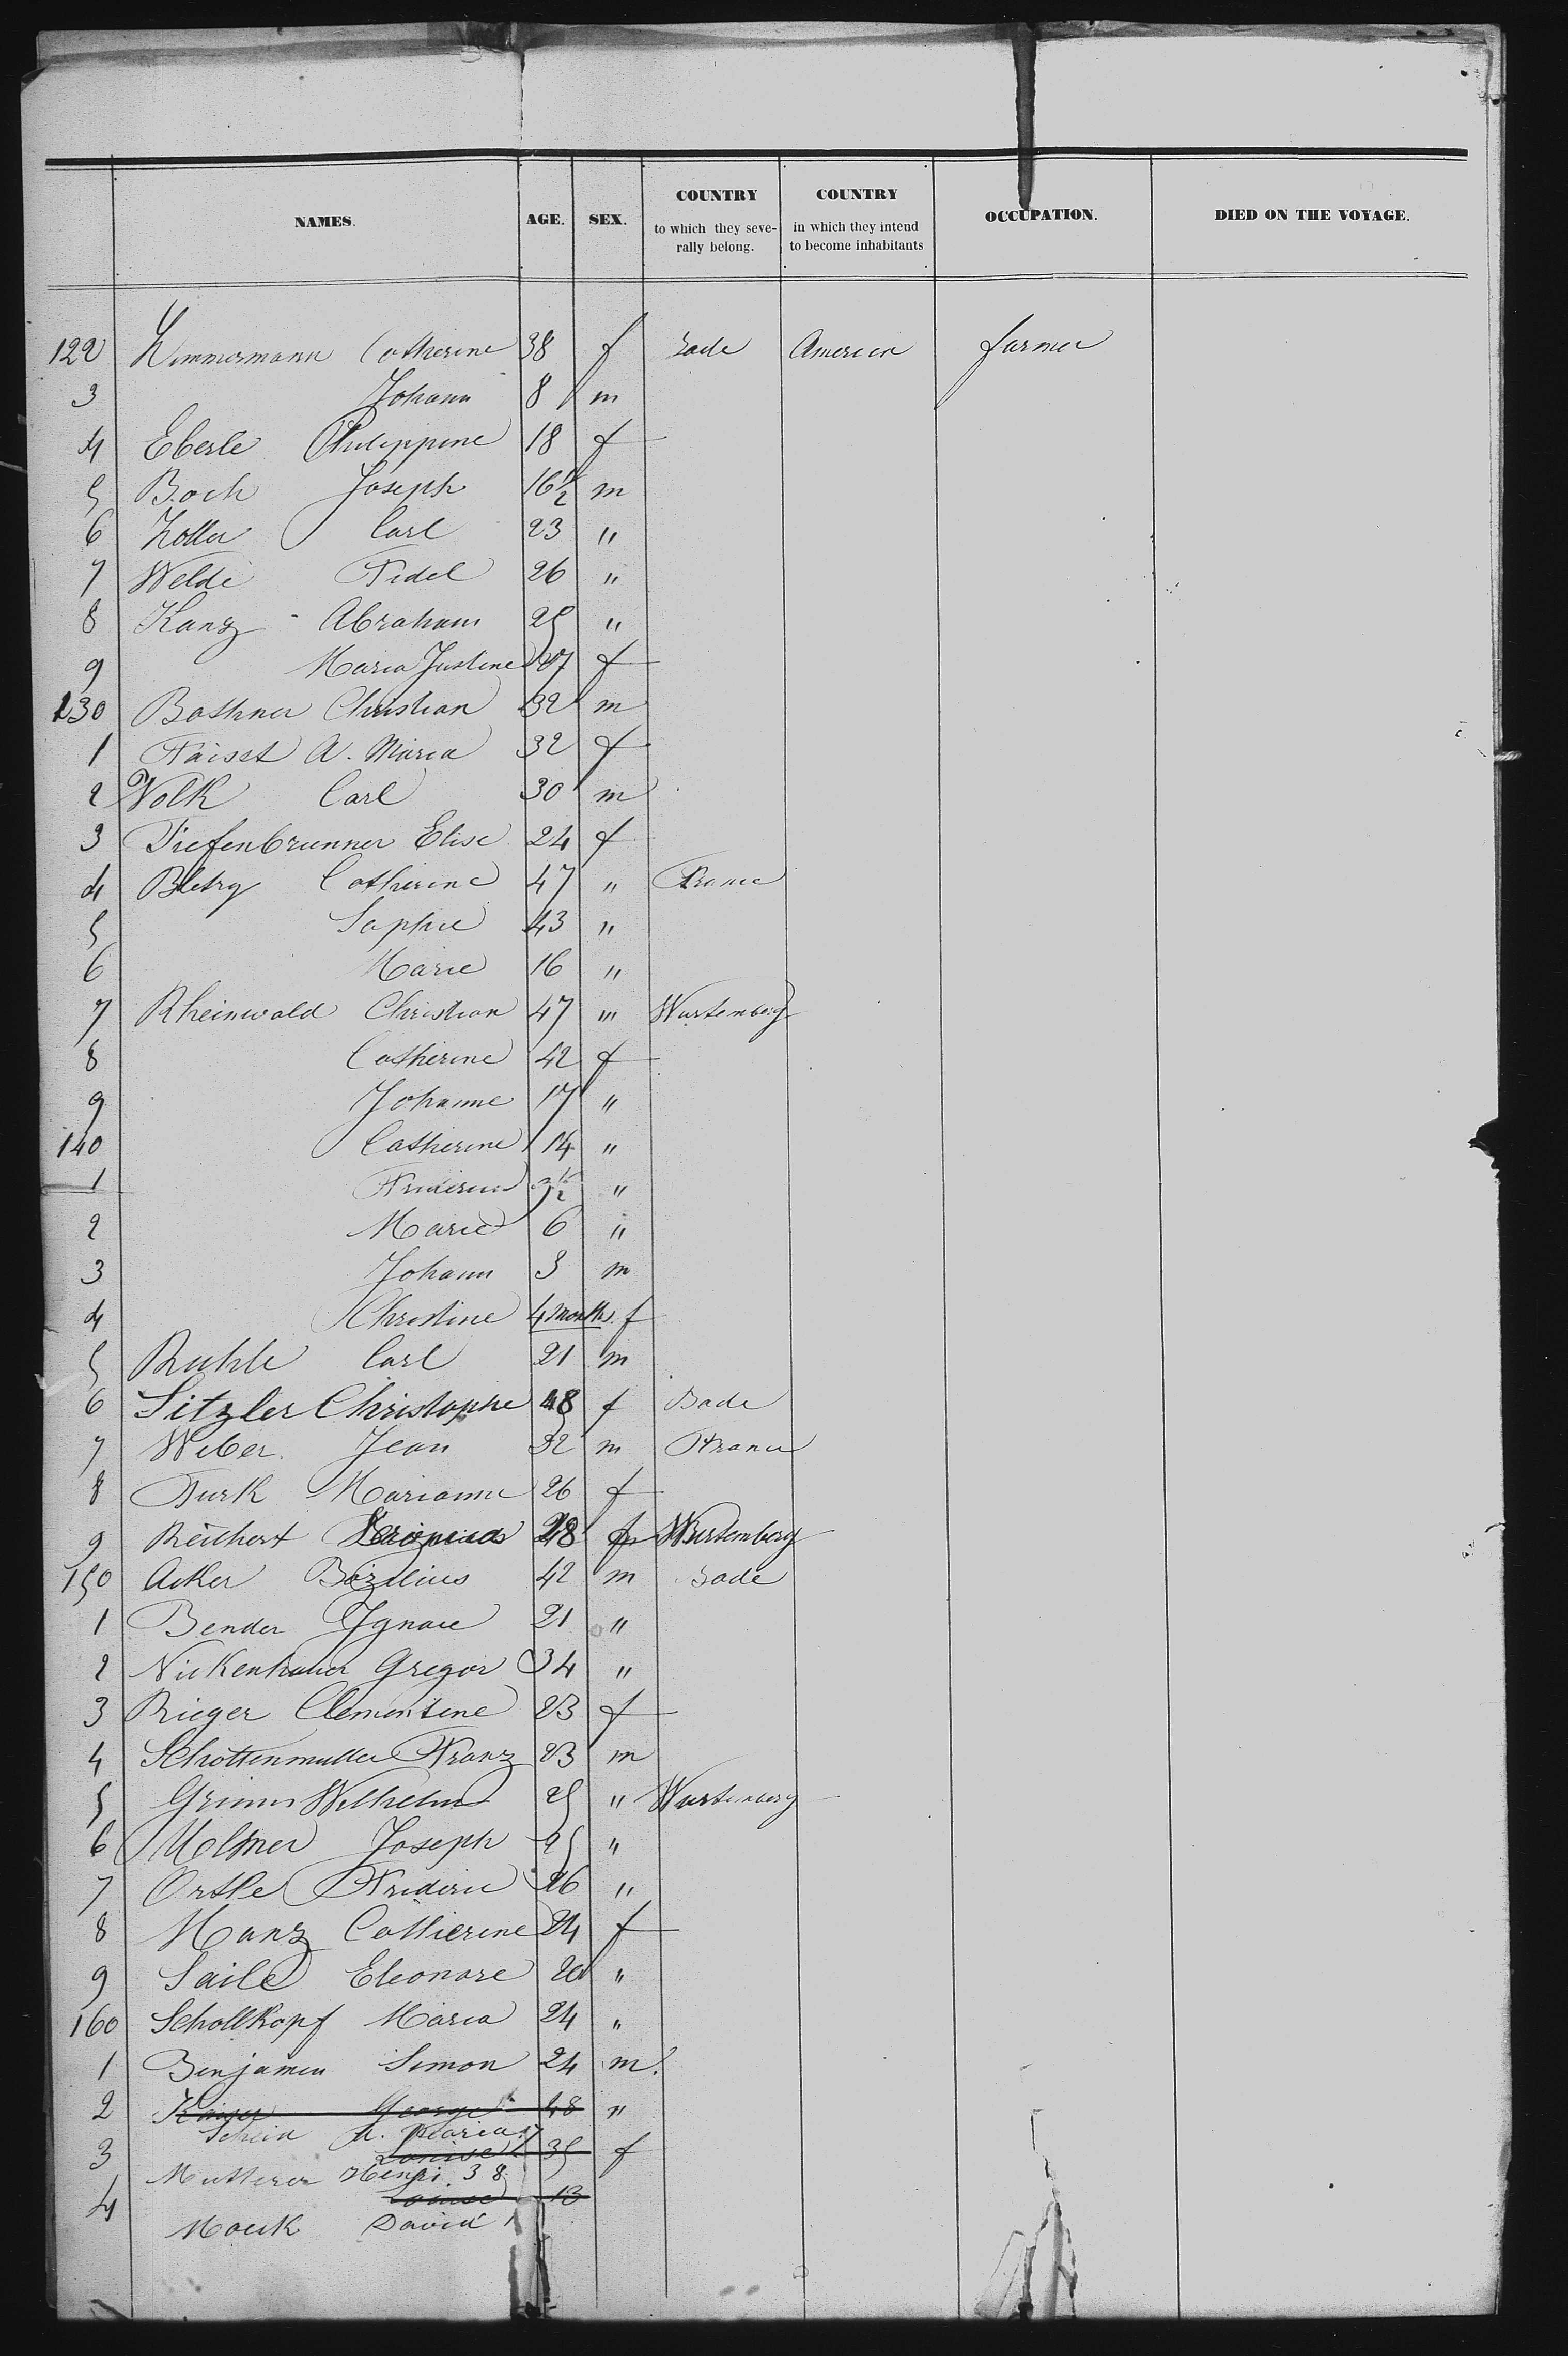 NAMES. AGE. SEX. COUNTRY to which they seve- rally belong. COUNTRY in which they intend to become inhabitants OCCUPATION. DIED ON THE VOYAGE.
122 Zimmermann Catherine 38 f Bade America farmer
3 Johann 8 m
4 Eberle Philippine 18 f
5 Boch Joseph 16 1/2 m
6 Zoller Carl 23 "
7 Welde Fidel 26 "
8 Kanz Abraham 25 "
9 Maria Justine 27 f
130 Bothner Christian 32 m
1 Faisst A. Maria 32 f
2 Volk Carl 30 m
3 Tiefenbrunner Elise 24 f
4 Bletry Catherine 47 " France
5 Sophie 43 "
6 Marie 16 "
7 Rheinwald Christian 47 m Wurtemberg
8 Catherine 42 f
9 Johanne 17 "
140 Catherine 14 "
1 "
2 Marie 6 "
3 Johann 3 m
4 Christine 4 months. f
5 Ruhle Carl 21 m
6 Sitzler Christophe 48 f Bade
7 Weber Jean 32 m France
8 Turk Marianne 26 f
9 Reichert 28 Wurtemberg
150 Acker Bazilius 42 m Bade
1 Bender Ignace 21 "
2 Nickenhauer Gregor 34 "
3 Rieger Clementine 23 f
4 Schottenmuller Franz 23 m
5 Grimm Wilhelm 25 " Wurtemberg
6 Joseph 25 "
7 Frideric 26 "
8 Manz Catherine 24 f
9 Saile Eleonore 20 "
160 Schollkopf Maria 24 "
1 Benjamin Simon 24 m.
2 Kaiser George 48 "
A. Maria 17
3 Louise 35 f
Mutterer Henri 38
4 Louise 13
Mouk David